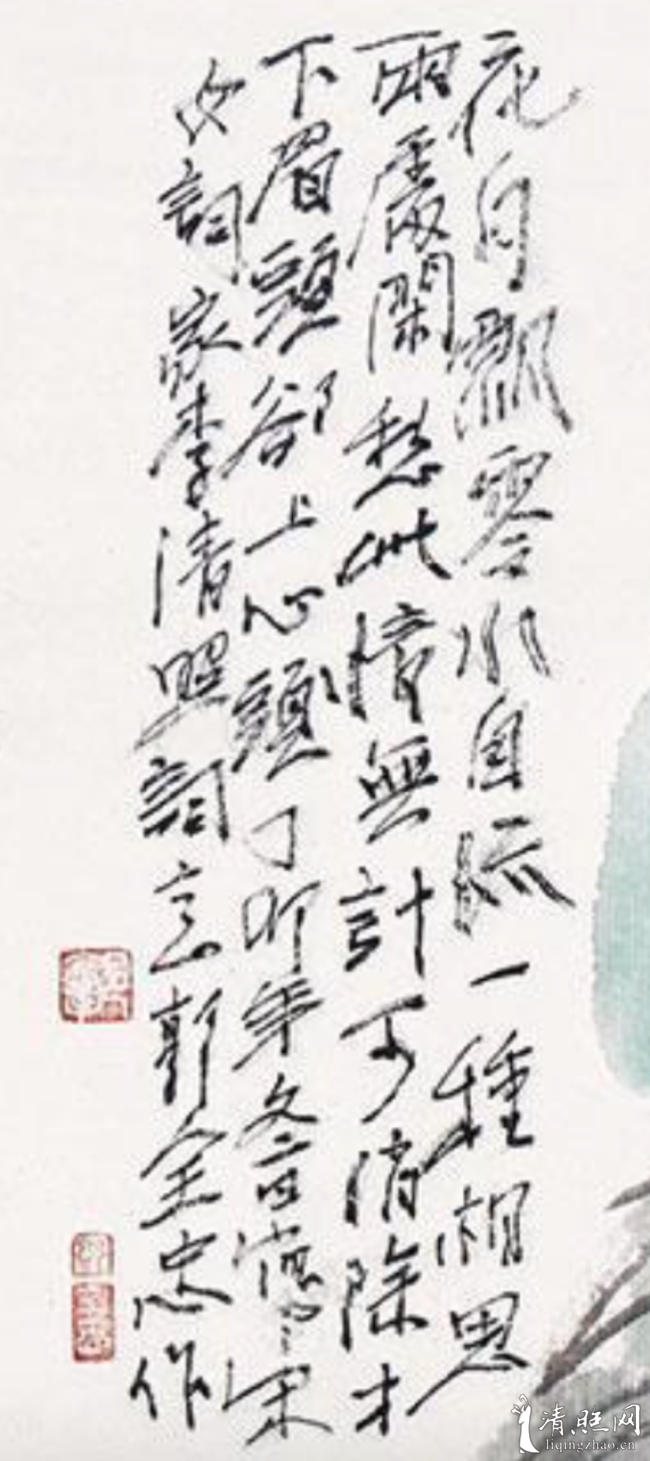 花自飄零水自流一種相思
兩處閑愁此情無計可消除才
下眉頭卻上心頭丁卯年冬宋
女詞家李清照詞意郭全忠作
清照网
liqingzhao.cn